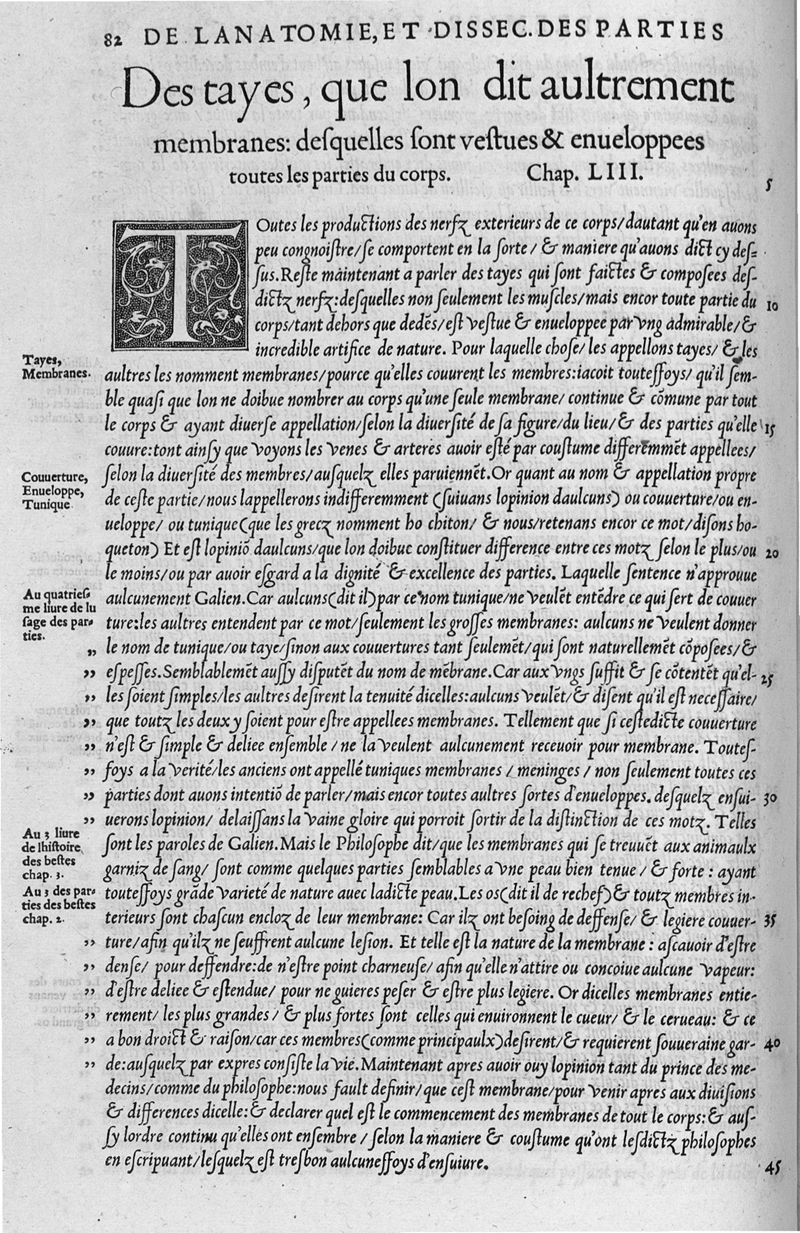 82 DE LANATOMIE, ET DISSEC. DES PARTIES
Des tayes, que lon dit aultrement
membranes: deſquelles ſont veſtues & enueloppees
toutes les parties du corps. Chap. LIII.
5
TOutes les productions des nerfz exterieurs de ce corps/dautant qu'en auons
peu congnoiſtre/ſe comportent en la ſorte/ & maniere qu'auons dict cy deſ=
ſus. Reſte maintenant a parler des tayes qui ſont faictes & compoſees deſ-
dictz nerfz: deſquelles non ſeulement les muſcles/mais encor toute partie du 10
corps/tant dehors que dedēs/eſt veſtue & enueloppee par vng admirable/&
incredible artifice de nature. Pour laquelle choſe/ les appellons tayes/ & les
Tayes,
Membranes.
aultres les nomment membranes/pource qu'elles couurent les membres: iacoit touteſſoys/ qu'il ſem-
ble quaſi que lon ne doibue nombrer au corps qu'une ſeule membrane/ continue & cōmune par tout
le corps & ayant diuerſe appellation/ſelon la diuerſité de ſa figure/du lieu/& des parties qu'elle 15
couure: tont ainſy que voyons les venes & arteres auoir eſté par couſtume differemmēt appellees/
Couuerture,
Enueloppe,
Tunique
ſelon la diuerſité des membres/auſquelz elles paruiennēt. Or quant au nom & appellation propre
de ceſte partie/nous lappellerons indifferemment (ſuiuans lopinion daulcuns) ou couuerture/ou en-
ueloppe/ ou tunique (que les grecz nomment ho chiton/ & nous/retenans encor ce mot/diſons ho-
queton) Et eſt lopiniō daulcuns/que lon doibue conſtituer difference entre ces motz ſelon le plus/ou 20
le moins/ou par auoir eſgard a la dignité & excellence des parties. Laquelle ſentence n'approuue
Au quatrieſ
me liure de lu
ſage des par=
ties.
aulcunement Galien. Car aulcuns (dit il) par ce nom tunique/ne veulēt entēdre ce qui ſert de couuer
ture: les aultres entendent par ce mot/ſeulement les groſſes membranes: aulcuns ne veulent donner
„ le nom de tunique/ou taye/ſinon aux couuertures tant ſeulemēt/qui ſont naturellemēt cōpoſees/&
„ eſpeſſes. Semblablemēt auſſy diſputēt du nom de mēbrane. Car aux vngs ſuffit & ſe cōtentēt qu'el- 25
„ les ſoient ſimples/les aultres deſirent la tenuité dicelles: aulcuns veulēt/& diſent qu'il eſt neceſſaire/
„ que toutz les deux y ſoient pour eſtre appellees membranes. Tellement que ſi ceſtedicte couuerture
„ n'eſt & ſimple & deliee enſemble / ne la veulent aulcunement receuoir pour membrane. Touteſ-
„ foys a la verité/les anciens ont appellé tuniques membranes / meninges / non ſeulement toutes ces
„ parties dont auons intentiō de parler/mais encor toutes aultres ſortes d'enueloppes. deſquelz enſui- 30
„ uerons lopinion/ delaiſſans la vaine gloire qui porroit ſortir de la diſtinction de ces motz. Telles
Au 3 liure
de lhiſtoire
des beſtes
chap. 3.
ſont les paroles de Galien. Mais le Philoſophe dit/que les membranes qui ſe treuuēt aux animaulx
garniz de ſang/ ſont comme quelques parties ſemblables a vne peau bien tenue / & forte : ayant
Au 3 des par=
ties des beſtes
chap. 2.
touteſſoys grāde varieté de nature auec ladicte peau. Les os (dit il de rechef) & toutz membres in-
terieurs ſont chaſcun encloz de leur membrane: Car ilz ont beſoing de deffenſe/ & legiere couuer- 35
„ ture/afin qu'ilz ne ſeuffrent aulcune leſion. Et telle eſt la nature de la membrane : aſcauoir d'eſtre
„ denſe/ pour deffendre: de n'eſtre point charneuſe/ afin qu'elle n'attire ou concoiue aulcune vapeur:
„ d'eſtre deliee & eſtendue/ pour ne guieres peſer & eſtre plus legiere. Or dicelles membranes entie-
„ rement/ les plus grandes / & plus fortes ſont celles qui enuironnent le cueur/ & le cerueau: & ce
„ a bon droict & raiſon/car ces membres (comme principaulx) deſirent/& requierent ſouueraine gar- 40
„ de: auſquelz par expres conſiſte la vie. Maintenant apres auoir ouy lopinion tant du prince des me-
decins/comme du philoſophe: nous fault definir/que ceſt membrane/pour venir apres aux diuiſions
& differences dicelle: & declarer quel eſt le commencement des membranes de tout le corps: & auſ-
ſy lordre continu qu'elles ont enſembre / ſelon la maniere & couſtume qu'ont leſdictz philoſophes
en eſcripuant/leſquelz eſt treſbon aulcuneſfoys d'enſuiure. 45